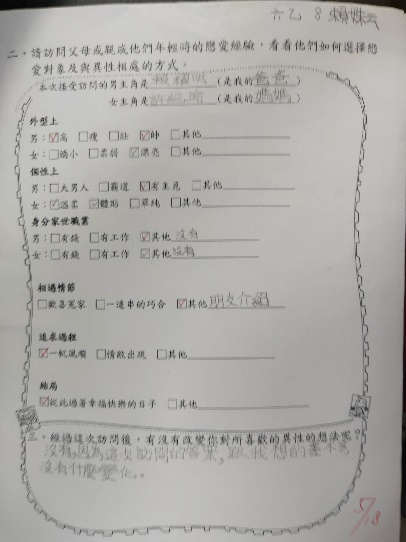 六乙 8 賴姝云
二、請訪問父母或親戚他們年輕時的戀愛經驗，看看他們如何選擇戀
愛對象及與異性相處的方式。
本次接受訪問的男主角是賴（是我的爸爸）
女主角是許（是我的媽媽）
外型上
男：☑高 □瘦 □壯 ☑帥 □其他
女：□嬌小 □柔弱 ☑漂亮 □其他
個性上
男：□大男人 □霸道 ☑有主見 □其他
女：☑溫柔 ☑體貼 □單純 □其他
身分家世職業
男：□有錢 □有工作 ☑其他 沒有
女：□有錢 □有工作 ☑其他 沒有
相遇情節
□歡喜冤家 □一連串的巧合 ☑其他 朋友介紹
追求過程
☑一帆風順 □情敵出現 □其他
結局
☑從此過著幸福快樂的日子 □其他
三、經過這次訪問後，有沒有改變你對所喜歡的異性的想法呢？
沒有，因為這次訪問的答案，跟我想的差不多
沒有什麼變化。
5/18